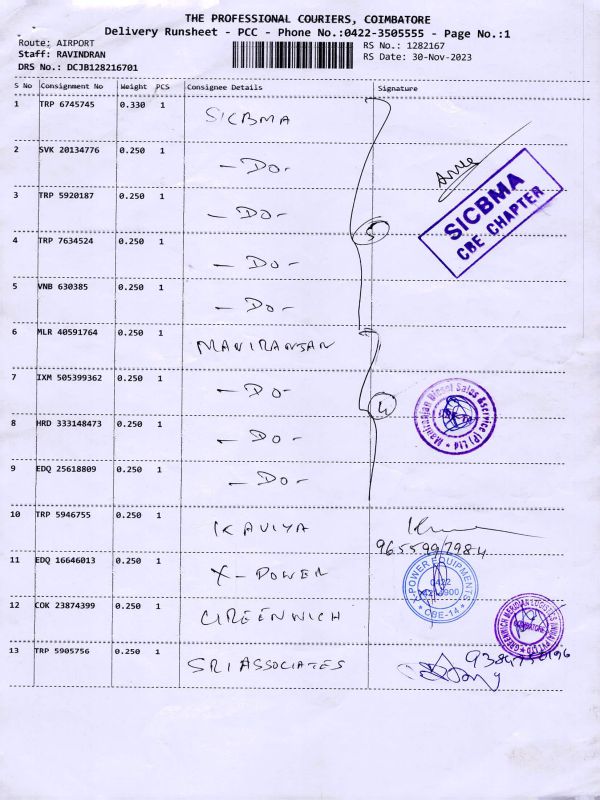 THE PROFESSIONAL COURIERS, COIMBATORE
Delivery Runsheet - PCC - Phone No.:0422-3505555 - Page No.:1
Route: AIRPORT RS No.: 1282167
Staff: RAVINDRAN RS Date: 30-Nov-2023
DRS No.: DCJB128216701
S No Consignment No Weight PCS Consignee Details Signature
1 TRP 6745745 0.330 1 SICBMA
2 SVK 20134776 0.250 1 - DO -
3 TRP 5920187 0.250 1 - DO -
SICBMA
CBE CHAPTER
5
4 TRP 7634524 0.250 1 - DO -
5 VNB 630385 0.250 1 - DO -
6 MLR 40591764 0.250 1 MANIRANJAN
7 IXM 505399362 0.250 1 - DO -
4
Maniranjan Diesel Sales &Service (P) Ltd
8 HRD 333148473 0.250 1 - DO -
9 EDQ 25618809 0.250 1 - DO -
10 TRP 5946755 0.250 1 KAVIYA
11 EDQ 16646013 0.250 1 X-POWER
X-POWER EQUIPMENTS
0422
CBE-14
12 COK 23874399 0.250 1 GREENWICH
GREENWICH MERIDIAN LOGISTICS (INDIA) PVT LTD
COIMBATORE
13 TRP 5905756 0.250 1 SRI ASSOCIATES